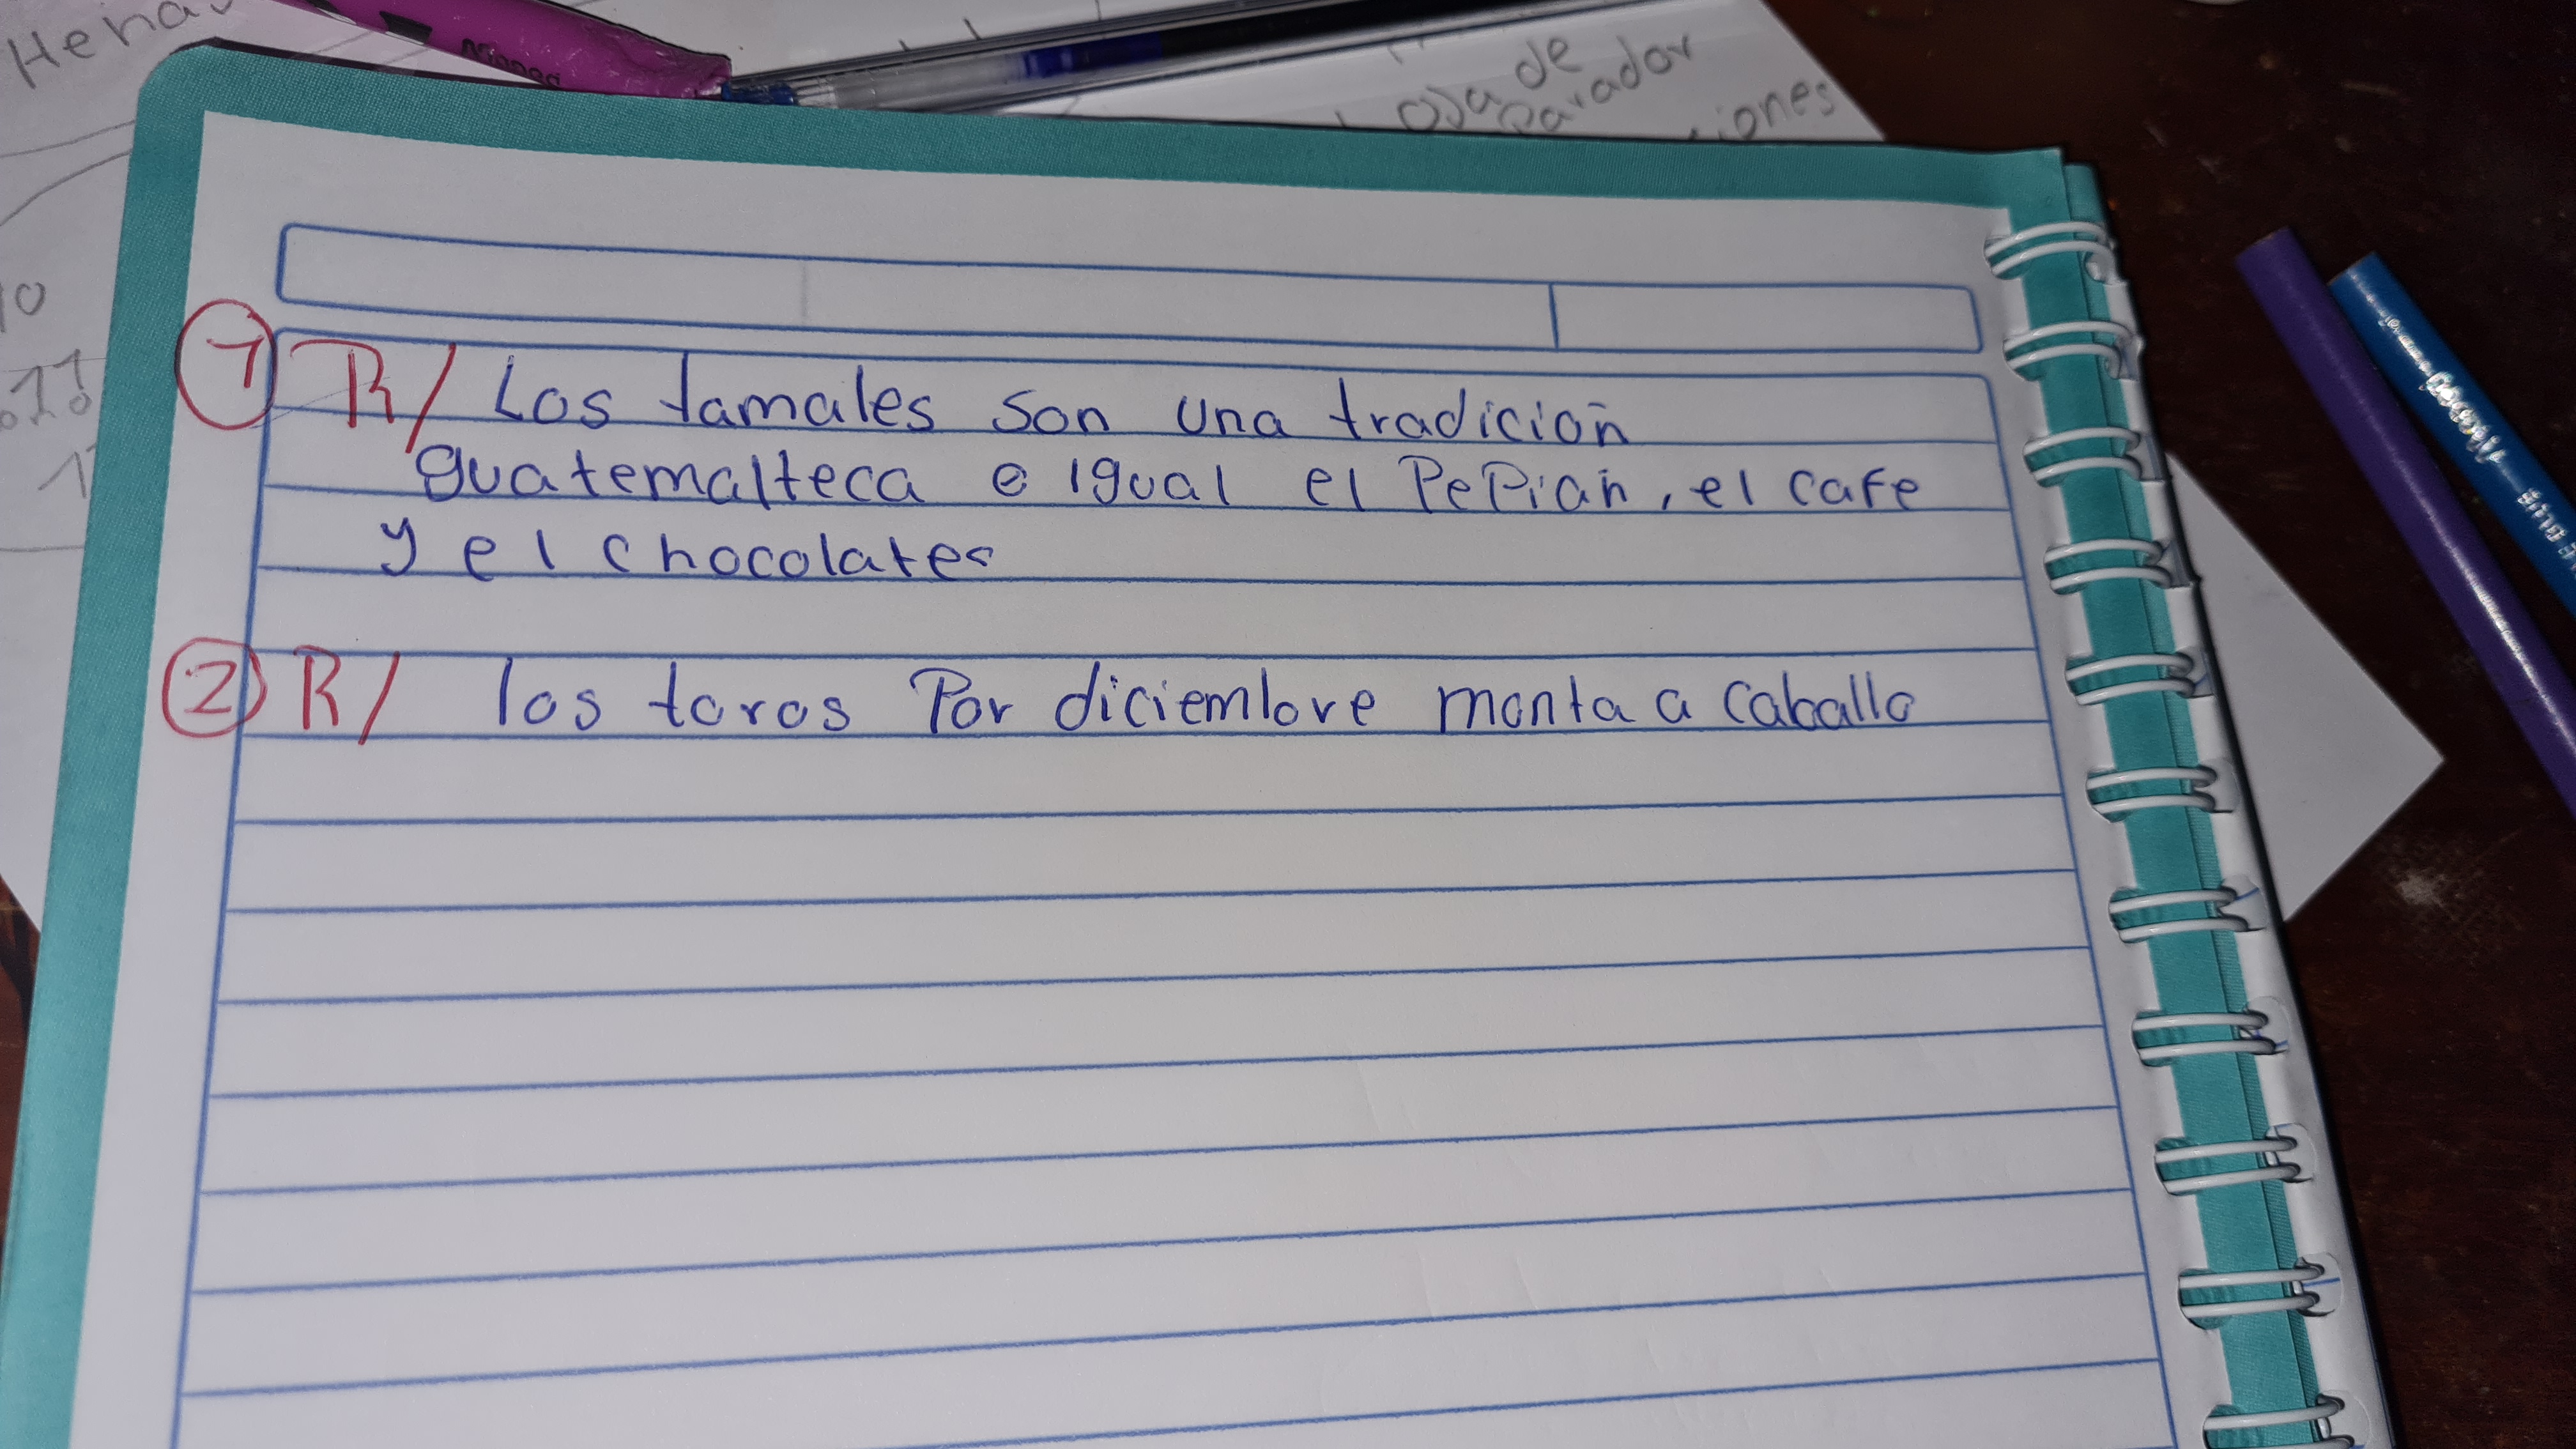 Hena
oja de
parador
ciones
10
11
1
① R/ Los tamales son una tradición
guatemalteca e igual el Pepián, el cafe
y el chocolates
② R/ los toros Por diciembre monta a caballo